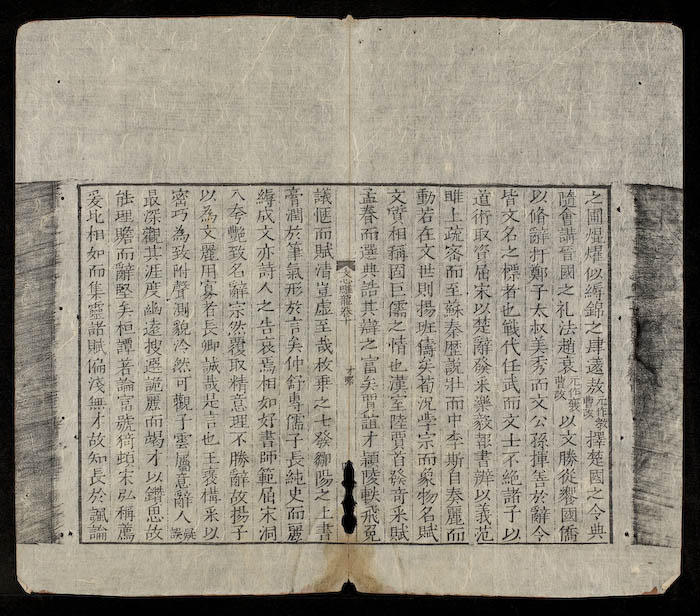 之圃燿燿似縟錦之肆薳敖元作教曹改擇楚國之令典
隨會講晉國之礼法趙衰元作襄曹改以文勝從饗國僑
以脩辭打鄭子太叔美秀而文公孫揮善於辭令
皆文名之標者也戰代任武而文士不絕諸子以
道術取資屈宋以楚辭發采樂毅報書辨以義范
雎上疏密而至蘇秦歷說壯而中李斯自奏麗而
動若在文世則揚班儔矣荀況學宗而象物名賦
文質相稱固巨儒之情也漢室陸賈首發奇采賦
孟春而選典誥其辯之富矣賈誼才穎陵軼飛兔
文心雕龍卷十 才略
議愜而賦清豈虛至哉枚乗之七發鄒陽之上書
膏潤於筆氣形於言矣仲舒專儒子長純史而麗
縟成文亦詩人之告哀焉相如好書師範屈宋洞
入夸艷致名辭宗然覆取精意理不勝辭故揚子
以為文麗用寡者長卿誠哉是言也王褒構采以
密巧為致附聲測貌泠然可觀子雲屬意辭人疑誤
最深觀其涯度幽遠搜選詭麗而竭才以鑽思故
能理贍而辭堅矣桓譚著論富號猗頓宋弘稱薦
爰比相如而集靈諸賦偏淺無才故知長於諷論